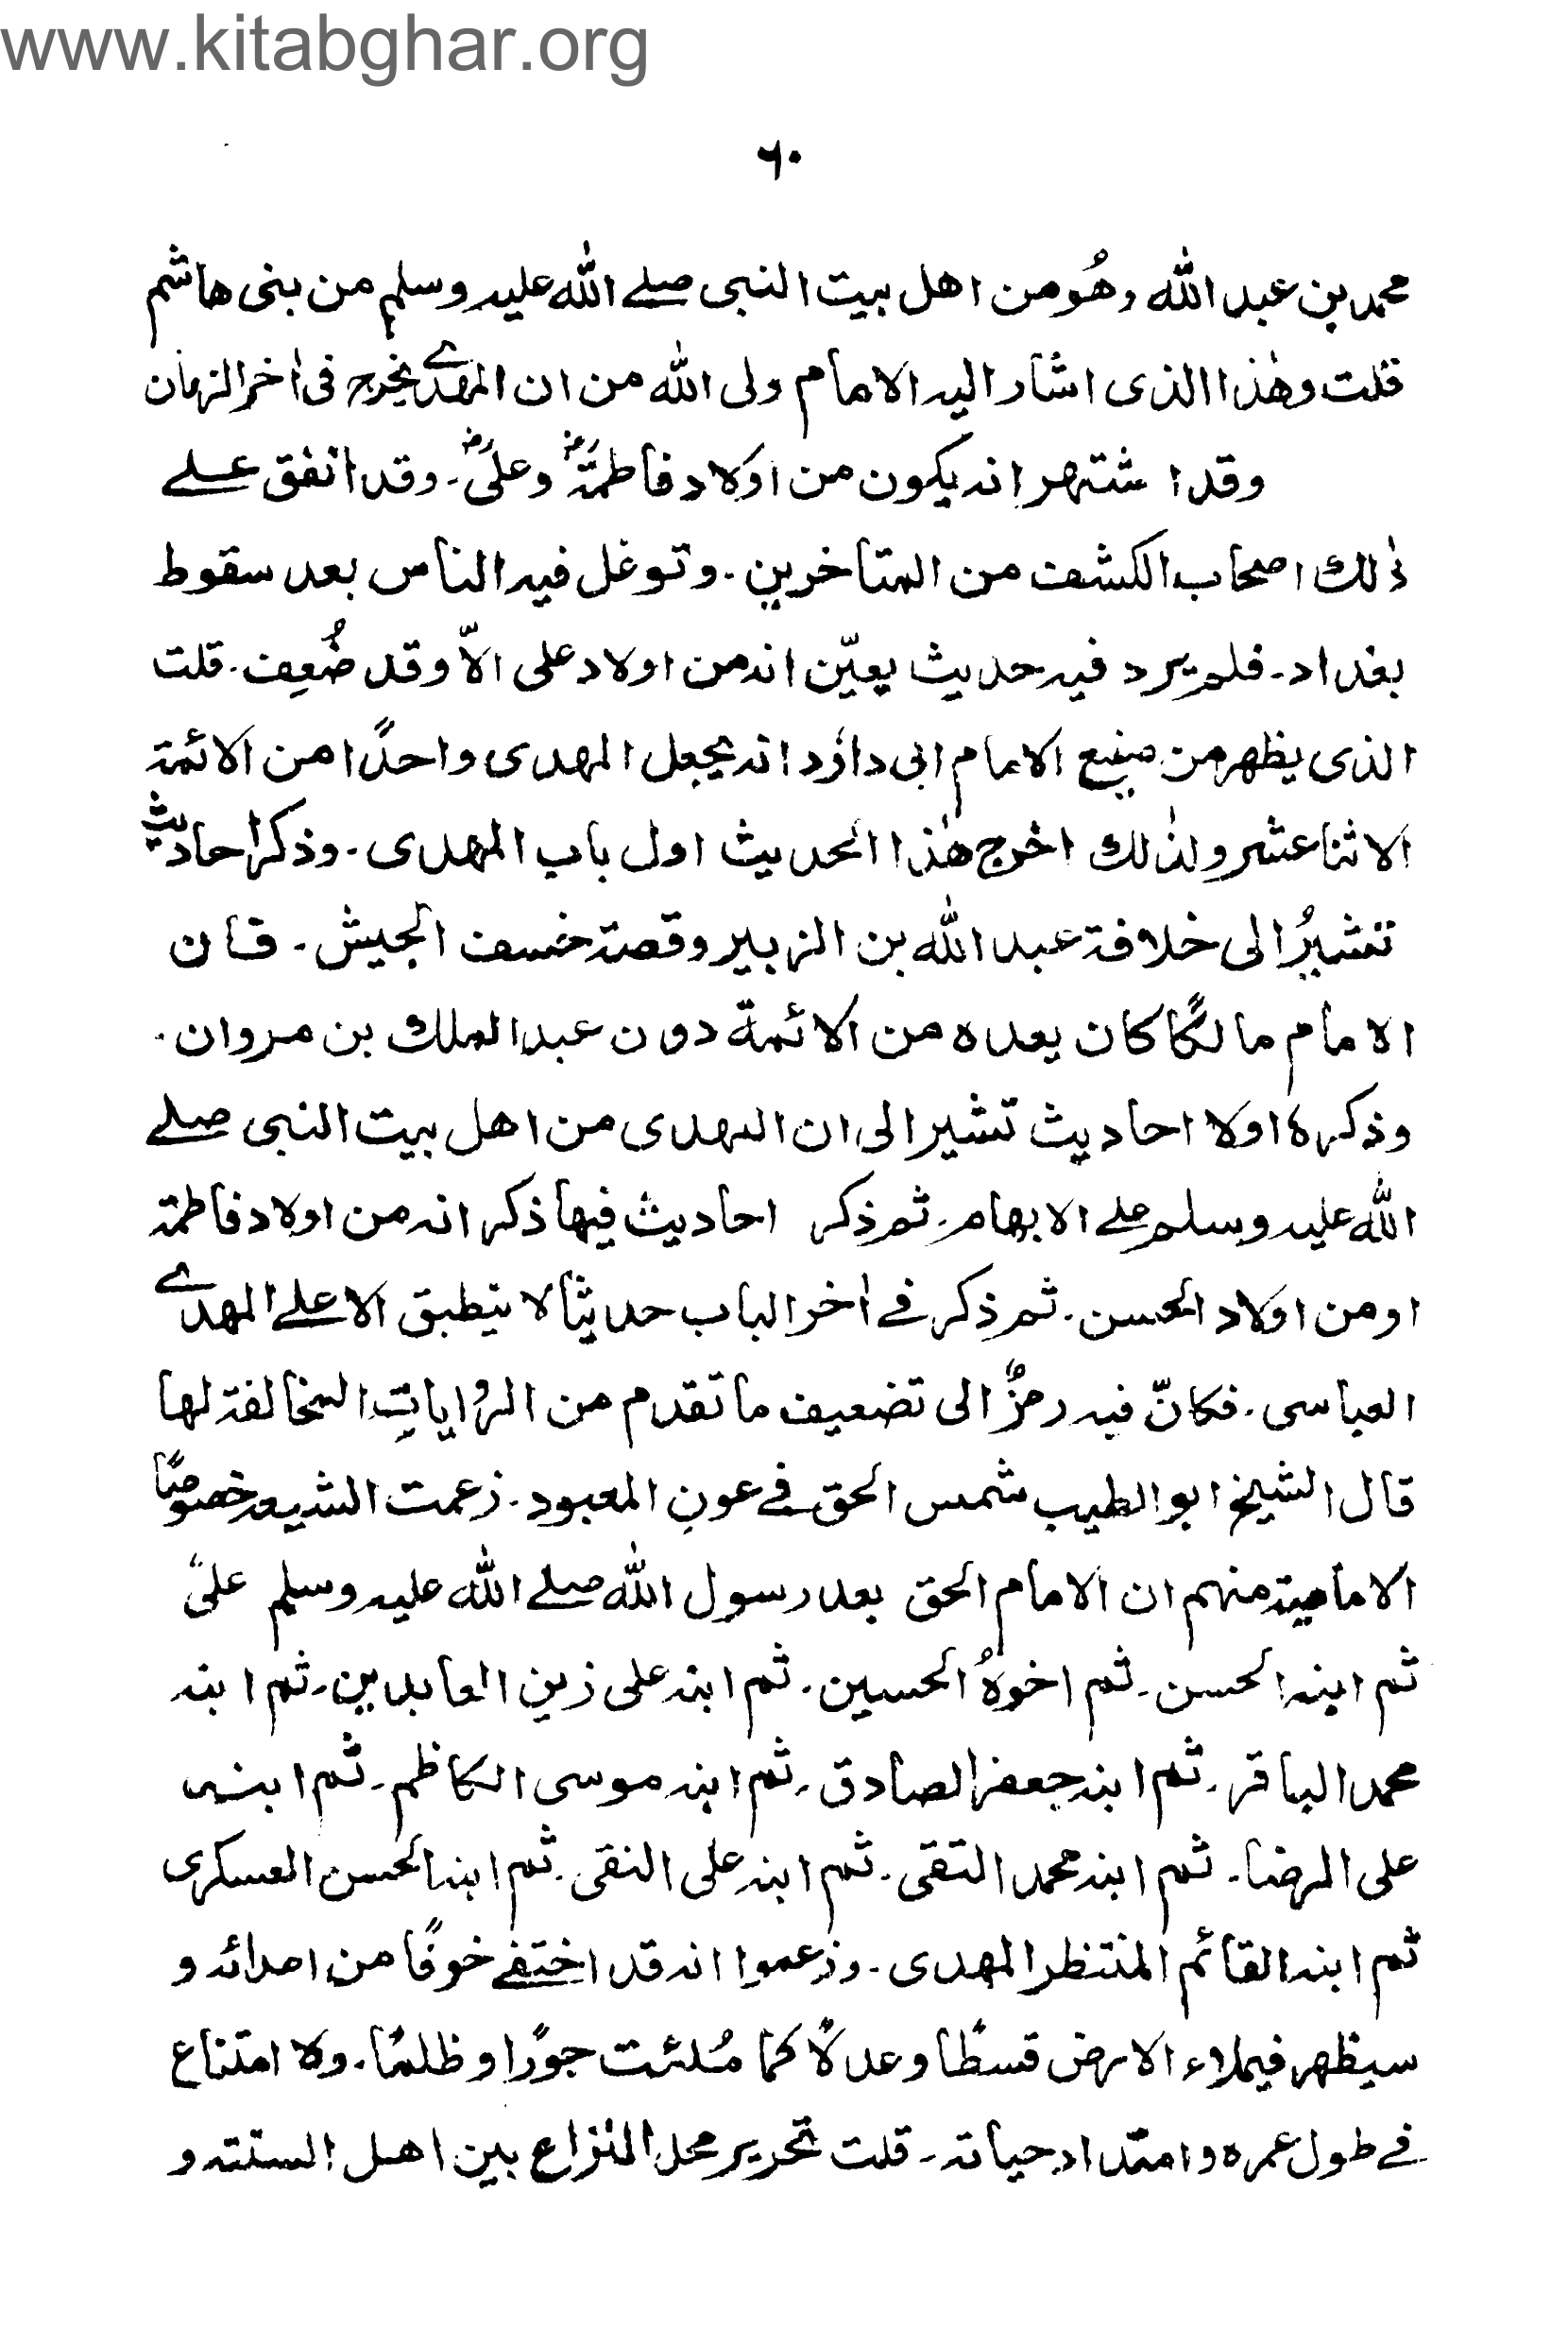 www.kitabghar.org
۶۰
محمد بن عبد اللّٰه وهُو من اهل بيت النبى صلے اللّٰه عليه وسلم من بنى هاشم
قلت وهٰذا الذى اشار اليه الامام ولى اللّٰه من ان المهدے يخرج فى اٰخر الزمان
وقد اشتهر انه يكون من اولاد فاطمةؓ وعلىؓ۔ وقد اتفق علے
ذٰلك اصحاب الكشف من المتاخرين۔ وتوغل فيه الناس بعد سقوط
بغداد۔ فلم يرد فيه حديث يعيّن انه من اولاد على الاّ وقد ضُعِف۔ قلت
الذى يظهر من صنيع الامام ابى داؤد انه يجعل المهدى واحدًا من الائمة
الاثنا عشر ولذٰلك اخرج هٰذا الحديث اول باب المهدى۔ وذكر احاديث
تشيرُ الى خلافة عبد اللّٰه بن الزبير وقصة خسف الجيش۔ فان
الامام مالكًا كان يعده من الائمة دون عبد الملك بن مروان۔
وذكره اولا احاديث تشير الى ان المهدى من اهل بيت النبى صلے
اللّٰه عليه وسلم علے الابهام۔ ثم ذكر احاديث فيها ذكر انه من اولاد فاطمة
او من اولاد الحسن۔ ثم ذكر فے اٰخر الباب حديثا لا ينطبق الا علے المهدے
العباسى۔ فكانّ فيه رمزٌ الى تضعيف ما تقدم من الرواياتِ المخالفة لها
قال الشيخ ابو الطيب شمس الحق فے عونِ المعبود۔ زعمت الشيعه خصوصًا
الامامية منهم ان الامام الحق بعد رسول اللّٰه صلے اللّٰه عليه وسلم علىً
ثم ابنه الحسن۔ ثم اخوهُ الحسين۔ ثم ابنه على زين العابدين۔ ثم ابنه
محمد الباقر۔ ثم ابنه جعفر الصادق۔ ثم ابنه موسى الكاظم۔ ثم ابنه
على الرضا۔ ثم ابنه محمد التقى۔ ثم ابنه على النقى۔ ثم ابنه الحسن العسكرى
ثم ابنه القائم المنتظر المهدى۔ وزعموا انه قد اختفے خوفًا من اعدائه و
سيظهر فيملاء الارض قسطًا وعدلاً كما مُلئت جورًا وظلمًا۔ ولا امتناع
فے طول عمره وامتداد حياته۔ قلت تحرير محل النزاع بين اهل السنته و